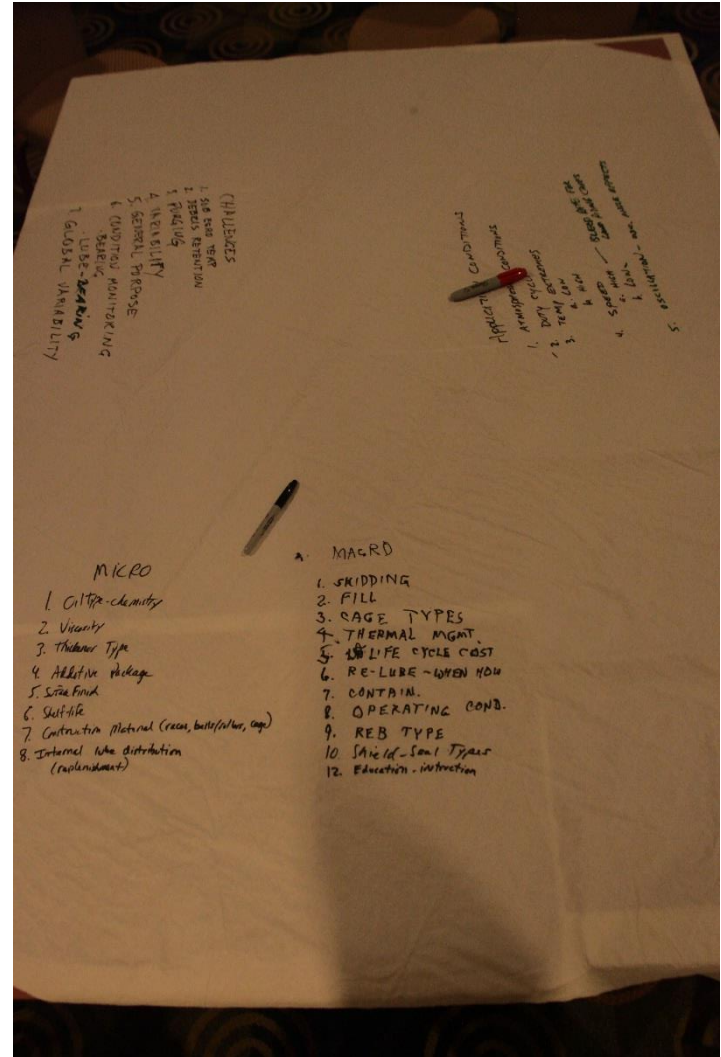 CHALLENGES
1. SUB ZERO TEMP
2. DEBRIS RETENTION
3. PURGING
4. VARIABILITY
5. GENERAL PURPOSE
6. CONDITION MONITORING
· BEARING
· LUBE-BEARING
7. GLOBAL VARIABILITY
APPLICATION CONDITIONS
1. CONDITIONS
2. DUTY CYCLE
3. TEMP EXTREMES
4. SPEED
a. HIGH
b. LOW
5. OSCILLATION
MICRO
1. Oil Type-chemistry
2. Viscosity
3. Thickener Type
4. Additive Package
5. Surface Finish
6. Shelf life
7. Construction Material (races, balls/rollers, cage)
8. Internal lube distribution
(replenishment)
MACRO
1. SKIDDING
2. FILL
3. CAGE TYPES
4. THERMAL MGMT.
5. LIFE CYCLE COST
6. RE-LUBE - WHEN HOW
7. CONTAIN.
8. OPERATING COND.
9. REB TYPE
10. Shield-Seal Types
12. Education-instruction